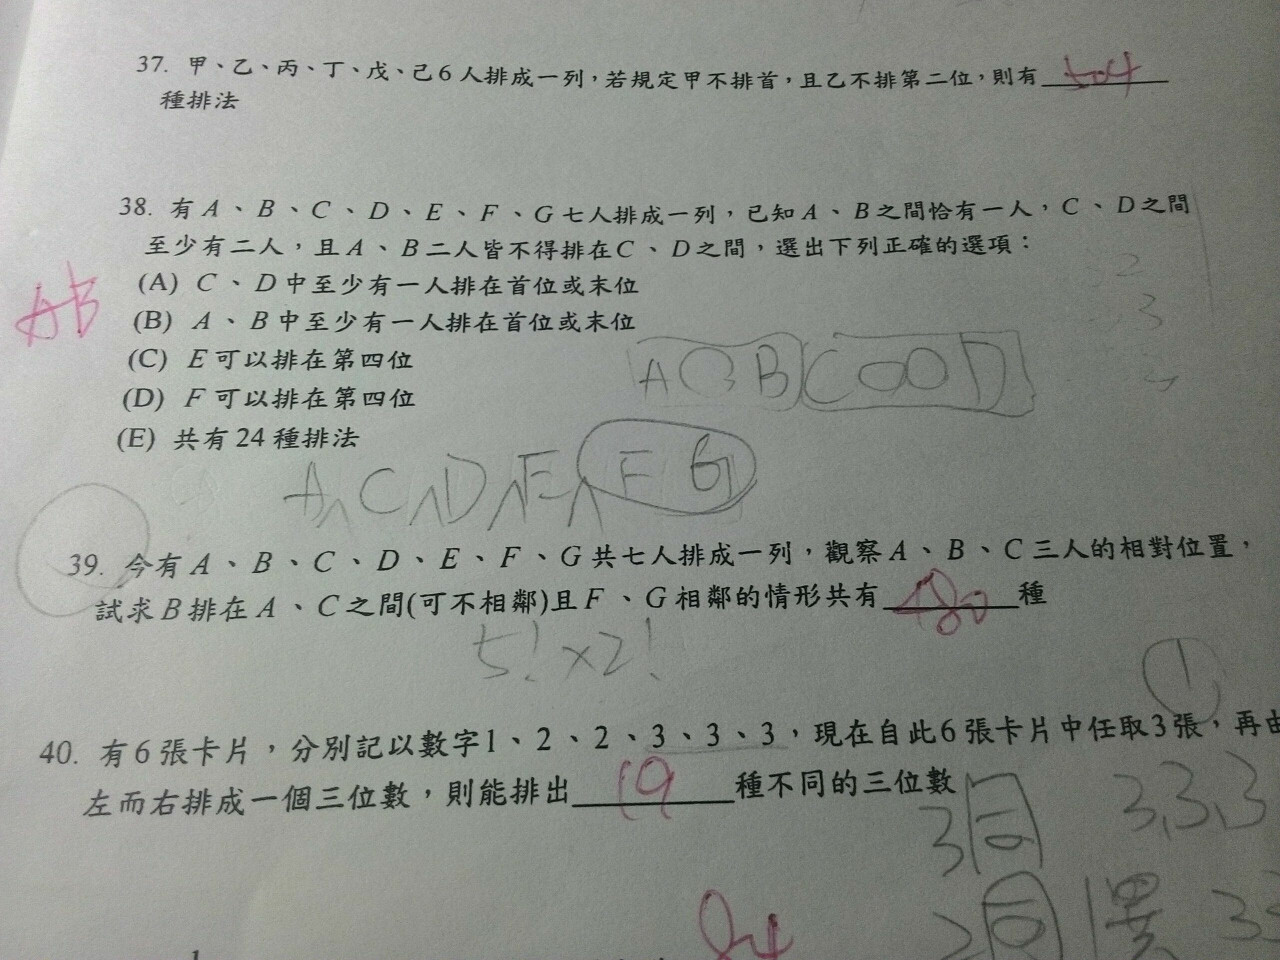 37. 甲、乙、丙、丁、戊、己6人排成一列，若規定甲不排首，且乙不排第二位，則有504
種排法
38. 有A、B、C、D、E、F、G七人排成一列，已知A、B之間恰有一人，C、D之間
至少有二人，且A、B二人皆不得排在C、D之間，選出下列正確的選項：
AB
(A) C、D中至少有一人排在首位或末位
(B) A、B中至少有一人排在首位或末位
(C) E可以排在第四位
(D) F可以排在第四位
(E) 共有24種排法
2
3
A○B C○○D
A C D E F G
39. 今有A、B、C、D、E、F、G共七人排成一列，觀察A、B、C三人的相對位置，
試求B排在A、C之間(可不相鄰)且F、G相鄰的情形共有480種
5!×2!
1
40. 有6張卡片，分別記以數字1、2、2、3、3、3，現在自此6張卡片中任取3張，再由
左而右排成一個三位數，則能排出19種不同的三位數
3同 3,3,3
2同1異 33
84